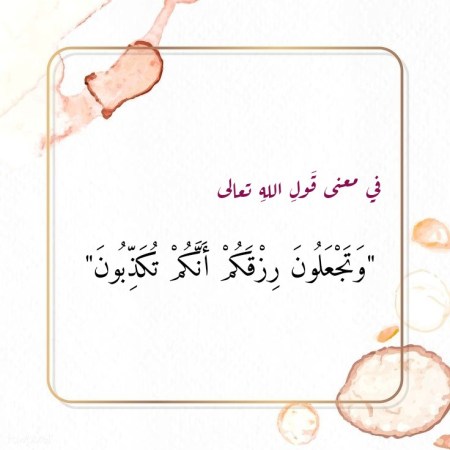 في معنى قَولِ اللهِ تعالى
"وَتَجْعَلُونَ رِزْقَكُمْ أَنَّكُمْ تُكَذِّبُونَ"